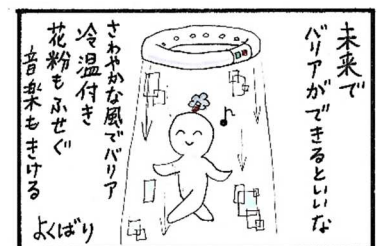 未来で
バリアができるといいな
さわやかな風でバリア
冷温付き
花粉もふせぐ
音楽もきける
よくばり